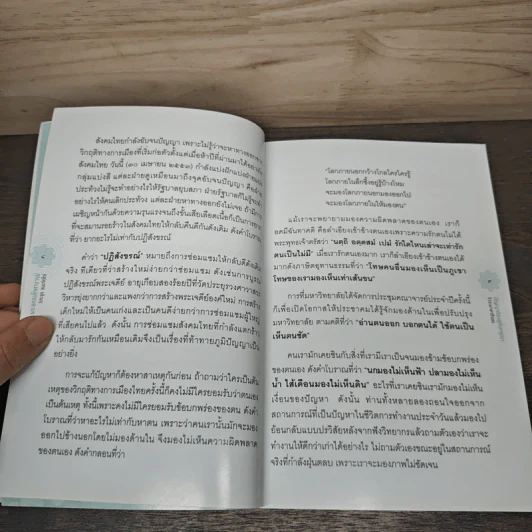 สังคมไทยกำลังขับจนปัญญา เพราะไม่รู้ว่าจะหาทางออกจาก
วิกฤติทางการเมืองที่เริ่มก่อตัวตั้งแต่เมื่อห้าปีที่ผ่านมาได้อย่างไร
สังคมไทย วันนี้ (๓๐ เมษายน ๒๕๕๓) กำลังแบ่งฝักแบ่งฝ่าย
กลุ่มแบ่งสี แต่ละฝ่ายดูเหมือนว่ามาถึงจุดอับจนปัญญา คือฝ่าย
ประท้วงไม่รู้จะทำอย่างไรให้รัฐบาลยุบสภา ฝ่ายรัฐบาลก็ไม่รู้จะทำ
อย่างไรให้คนเลิกประท้วง แต่ละฝ่ายหาทางออกยังไม่เจอ ยิ่งมีการ
เผชิญหน้ากันด้วยความรุนแรงจนถึงขั้นเสียเลือดเนื้อก็เป็นการยาก
ที่จะสมานรอยร้าวในสังคมไทยให้กลับคืนดีกันดังเดิม ดังคำโบราณ
ที่ว่า ยากอะไรไม่เท่ากับปฏิสังขรณ์
คำว่า “ปฏิสังขรณ์” หมายถึงการซ่อมแซมให้กลับดีดังเดิม
จริง ทีเดียวที่ว่าสร้างใหม่ง่ายกว่าซ่อมแซม ดังเช่นการบูรณ
ปฏิสังขรณ์พระเจดีย์ อายุเกือบสองร้อยปีที่วัดประยุรวงศาวาส
วิหารยุ่งยากกว่าและแพงกว่าการสร้างพระเจดีย์องค์ใหม่ การสร้าง
เด็กใหม่ให้เป็นคนเก่งและเป็นคนดีง่ายกว่าการซ่อมผู้ใหญ่
ที่เสียคนไปแล้ว ดังนั้น การซ่อมแซมสังคมไทยที่กำลังแตกร้าว
ให้กลับมารักกันเหมือนเดิมจึงเป็นเรื่องที่ท้าทายภูมิปัญญาเป็น
อย่างยิ่ง
การจะแก้ปัญหาก็ต้องหาสาเหตุกันก่อน ถ้าถามว่าใครเป็นต้น
เหตุของวิกฤติทางการเมืองไทยครั้งนี้ก็คงไม่มีใครยอมรับว่าตนเอง
เป็นต้นเหตุ ทั้งนี้เพราะคงไม่มีใครยอมรับข้อบกพร่องของตน ดังคำ
โบราณที่ว่าหาอะไรไม่เท่ากับหาตน เพราะว่าคนเรานั้นมักจะมอง
ออกไปข้างนอกโดยไม่มองด้านใน จึงมองไม่เห็นความผิดพลาด
ของตนเอง ดังคำกลอนที่ว่า
“โลกภายนอกกว้างไกลใครใครรู้
โลกภายในลึกซึ้งอยู่รู้บ้างไหม
จะมองโลกภายนอกมองออกไป
จะมองโลกภายในให้มองตน”
แม้เราจะพยายามมองความผิดพลาดของตนเอง เราก็
อดมีฉันทาคติ คือลำเอียงเข้าข้างตนเองเพราะความรักตนไม่ได้
พระพุทธเจ้าตรัสว่า “นตฺถิ อตฺตสมํ เปมํ รักใดไหนเล่าจะเท่ารัก
ตนเป็นไม่มี” เมื่อเรารักตนเองมาก เราก็ลำเอียงเข้าข้างตนเองได้
มากดังภาษิตอุทานธรรมที่ว่า “โทษคนอื่นมองเห็นเป็นภูเขา
โทษของเรามองเห็นเท่าเส้นขน”
การที่มหาวิทยาลัยได้จัดการประชุมคณาจารย์ประจำปีครั้งนี้
ก็เพื่อเปิดโอกาสให้ประชาคมได้รู้จักมองด้านในเพื่อปรับปรุง
มหาวิทยาลัย ตามคติที่ว่า “อ่านตนออก บอกตนได้ ใช้ตนเป็น
เห็นตนชัด”
คนเรามักเคยชินกับสิ่งที่เรามีเราเป็นจนมองข้ามข้อบกพร่อง
ของตนเอง ดังคำโบราณที่ว่า “นกมองไม่เห็นฟ้า ปลามองไม่เห็น
น้ำ ไส้เดือนมองไม่เห็นดิน” อะไรที่เราเคยชินเรามักมองไม่เห็น
เงื่อนของปัญหา ดังนั้น ท่านทั้งหลายลองถอนใจออกจาก
สถานการณ์ที่เป็นปัญหาในชีวิตการทำงานประจำวันแล้วมองไป
ย้อนกลับแบบปรวิสัยหลังจากฟังวิทยากรแล้วถามตัวเองว่าเราจะ
ทำงานให้ดีกว่าเก่าได้อย่างไร ไม่ถามตัวเองขณะอยู่ในสถานการณ์
จริงที่กำลังฝุ่นตลบ เพราะเราจะมองภาพไม่ชัดเจน